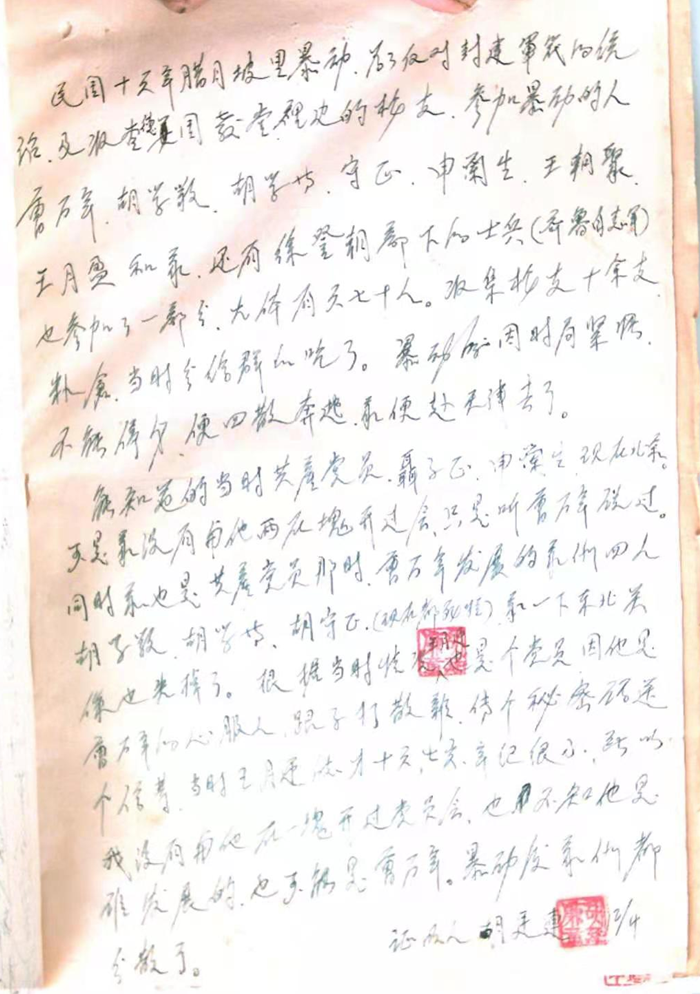 民国十六年腊月坡里暴动，为了反对封建军伐的统
治，及收查德国教堂裡边的枪支，参加暴动的人
曹万年，胡学敬，胡学 守正，申兰生，王朝聚，
王月盈和我，还有徐登朝部下的士兵（
也参加了一部分，大体有六七十人。收集枪支十余支，
当时分给群众吃了。暴动后因时局紧
不能停留，便四散奔逃，我便赴天津去了。
能知道的当时共产党员，聂子正，申兰生现在北京。
可是我没有和他两在块开过会，只是听曹万年说过。
同时我也是共产党员那时，曹万年发展的我们四人
胡学敬 胡学 胡守正，（现在都死啦）我一下东北关
係也失掉了。根据当时情况 也是个党员，因他是
曹万年的心服人，跟了打散杂，传个秘密砳送
个信等，当时王月 才十六，七岁，年纪很小，所以
我没有和他在一塊开过党员会，也不知他是
谁发展的，也可能是曹万年。暴动后我们都
分散了。
证明人 胡 2/4